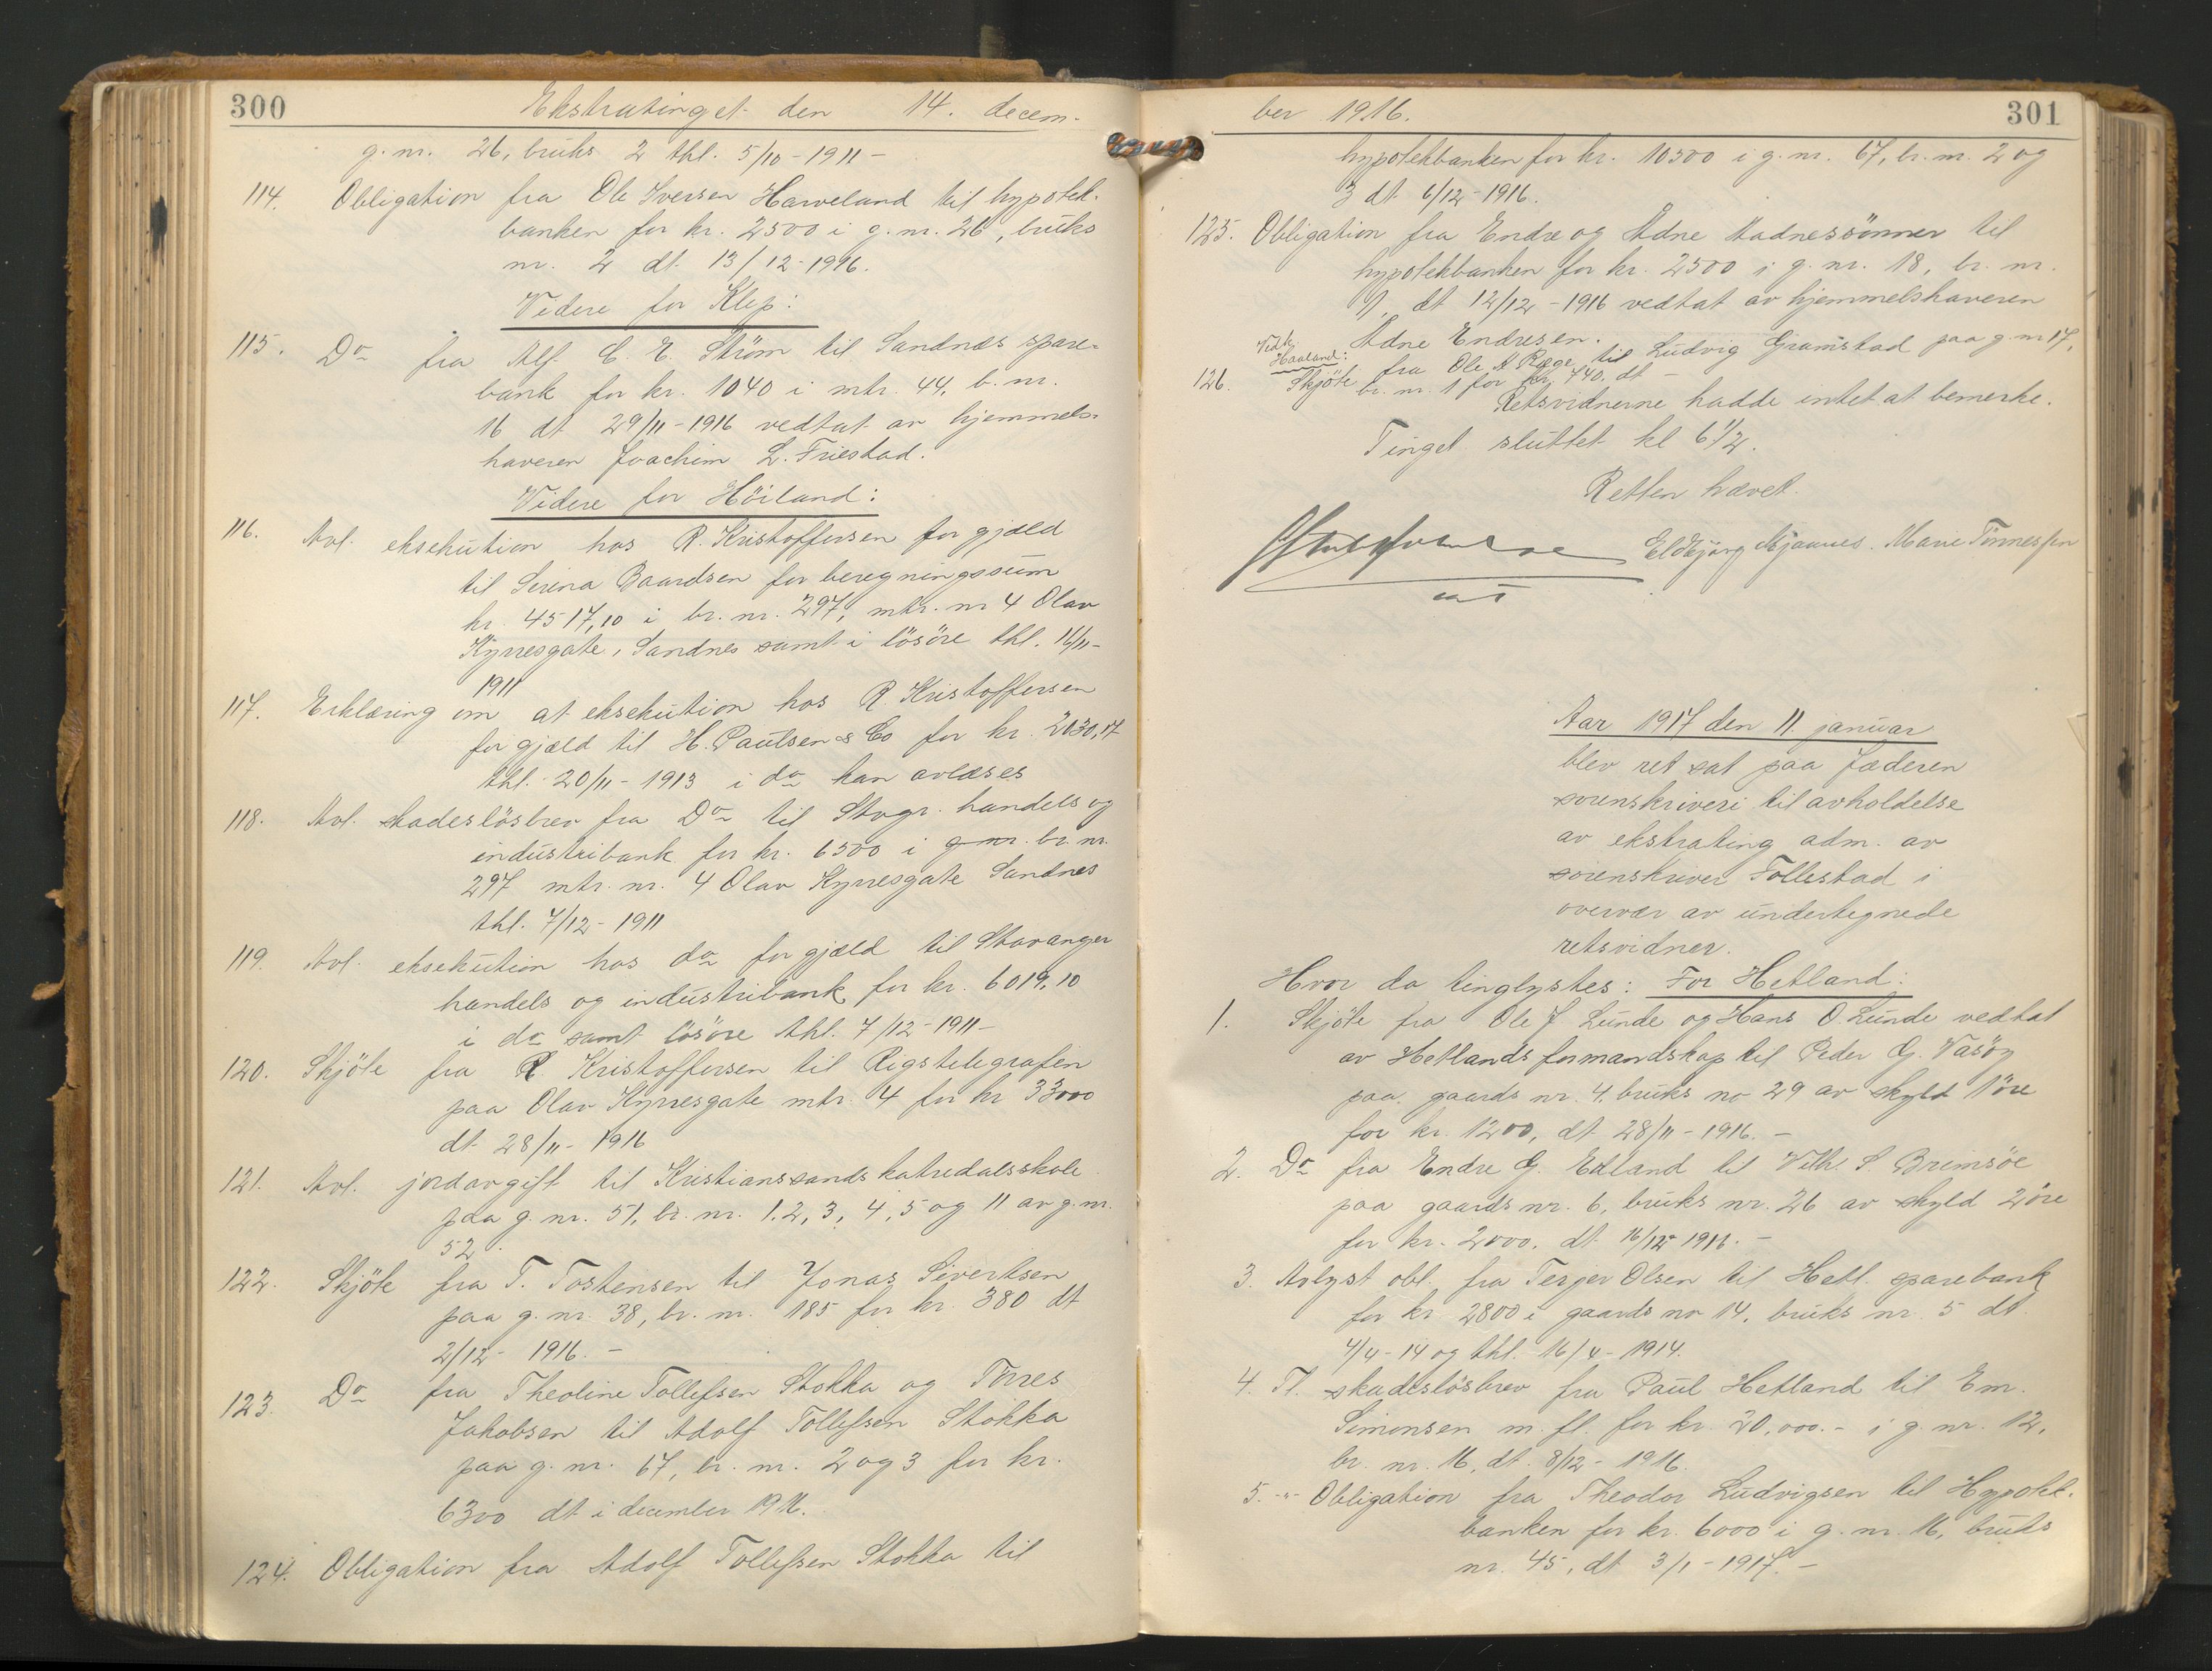 300
Ekstratinget den 14. decem-
g. nr. 26, bruks 2 thl. 5/10-1911-
114. Obligation fra Ole Iversen Harveland til hypotek-
banken for kr. 2500 i g. nr. 26, bruks
nr. 2 dt. 13/12-1916.
Videre for Klep:
115. Do fra Alf. C. E. Strøm til Sandnæs spare-
bank for kr. 1040 i mtr. 44, b. nr.
16 dt 29/11-1916 vedtat av hjemmels-
haveren Joachim L. Friestad.
Videre for Höiland:
116. Avl. eksekution hos R. Kristoffersen for gjæld
til Serina Baardsen for beregningssum
kr. 4517,10 i br. nr. 297, mtr. nr 4 Olav
Kyrresgate, Sandnes samt i lösöre thl. 16/11-
1911
117. Erklæring om at eksekution hos R Kristoffersen
for gjæld til H. Paulsen & Co for kr. 2030,17
thl. 20/11-1913 i do kan avlæses
118. Avl. skadeslösbrev fra Do til Stvgr. handels og
industribank for kr. 6500 i g. nr. br. nr.
297 mtr. nr. 4 Olav Kyrresgate Sandnes
thl. 7/12-1911
119. Avl. eksekution hos do for gjæld til Stavanger
handels og industribank for kr. 6019,10
i do samt lösöre thl. 7/12-1911-
120. Skjöte fra R. Kristoffersen til Rigstelegrafen
paa Olav Kyrresgate mtr. 4 for kr 33000
dt 28/11-1916
121. Avl. jordavgift til Kristianssands katredalsskole
paa g. nr. 51, br. nr. 1, 2, 3, 4, 5 og 11 av g. nr.
52.
122. Skjöte fra T. Tostensen til Jonas Sivertsen
paa g. nr. 38, br. nr. 185 for kr. 380 dt
2/12-1916.-
123. Do fra Theoline Tollefsen Stokka og Törres
Jakobsen til Adolf Tollefsen Stokka
paa g. nr. 67, br. nr. 2 og 3 for kr.
6300 dt i december 1916.
124. Obligation fra Adolf Tollefsen Stokka til
ber 1916.
301
hypotekbanken for kr. 10500 i g. nr. 67, br. nr. 2 og
3 dt 6/12-1916.
125. Obligation fra Endre og Ådne Aadnessönner til
hypotekbanken for kr. 2500 i g. nr. 18, br. nr.
9, dt 12/12-1916 vedtat av hjemmelshaveren
Ådne Endresen.
Haaland:
126. Skjöte fra Ole A Ræge til Ludvig Gramstad paa g nr 17,
br. nr. 1 for kr. 440. dt -
Retsvidnerne hadde intet at bemerke.
Tinget sluttet kl 6 1/2.
Retten hævet.
Eldbjørg Mjaanes. Marie Tönnessen
cst
Aar 1917 den 11. januar
blev ret sat paa Jæderen
sorenskriveri til avholdelse
av ekstrating adm. av
sorenskriver Follestad i
overvær av undertegnede
retsvidner.
Hvor da tinglystes: For Hetland:
1. Skjöte fra Ole J. Lunde og Hans O. Lunde vedtat
av Hetlands formandskap til Peder G. Vasöy
paa gaards nr. 4, bruks no 29 av skyld 1 öre
for kr. 1200, dt 28/11-1916.-
2. Do fra Endre G. Edland til Vilh. S. Brimsöe
paa gaards nr. 6, bruks nr. 26 av skyld 2 öre
for kr. 2000. dt 16/12 1916.-
3. Avlyst obl. fra Terjer Olsen til Hetl. sparebank
for kr. 2800 i gaards no 14, bruks nr. 5 dt
4/4-14 og thl. 16/4-1914.
4. Tl. skadeslösbrev fra Paul Hetland til Em.
Simonsen m. fl. for kr. 20,000.- i g. nr. 12,
br. nr. 16, dt. 8/12-1916.
5. -"- Obligation fra Theodor Ludvigsen til Hypotek-
banken for kr. 6000 i g. nr. 16, bruks
nr. 45, dt 3/1-1917.-